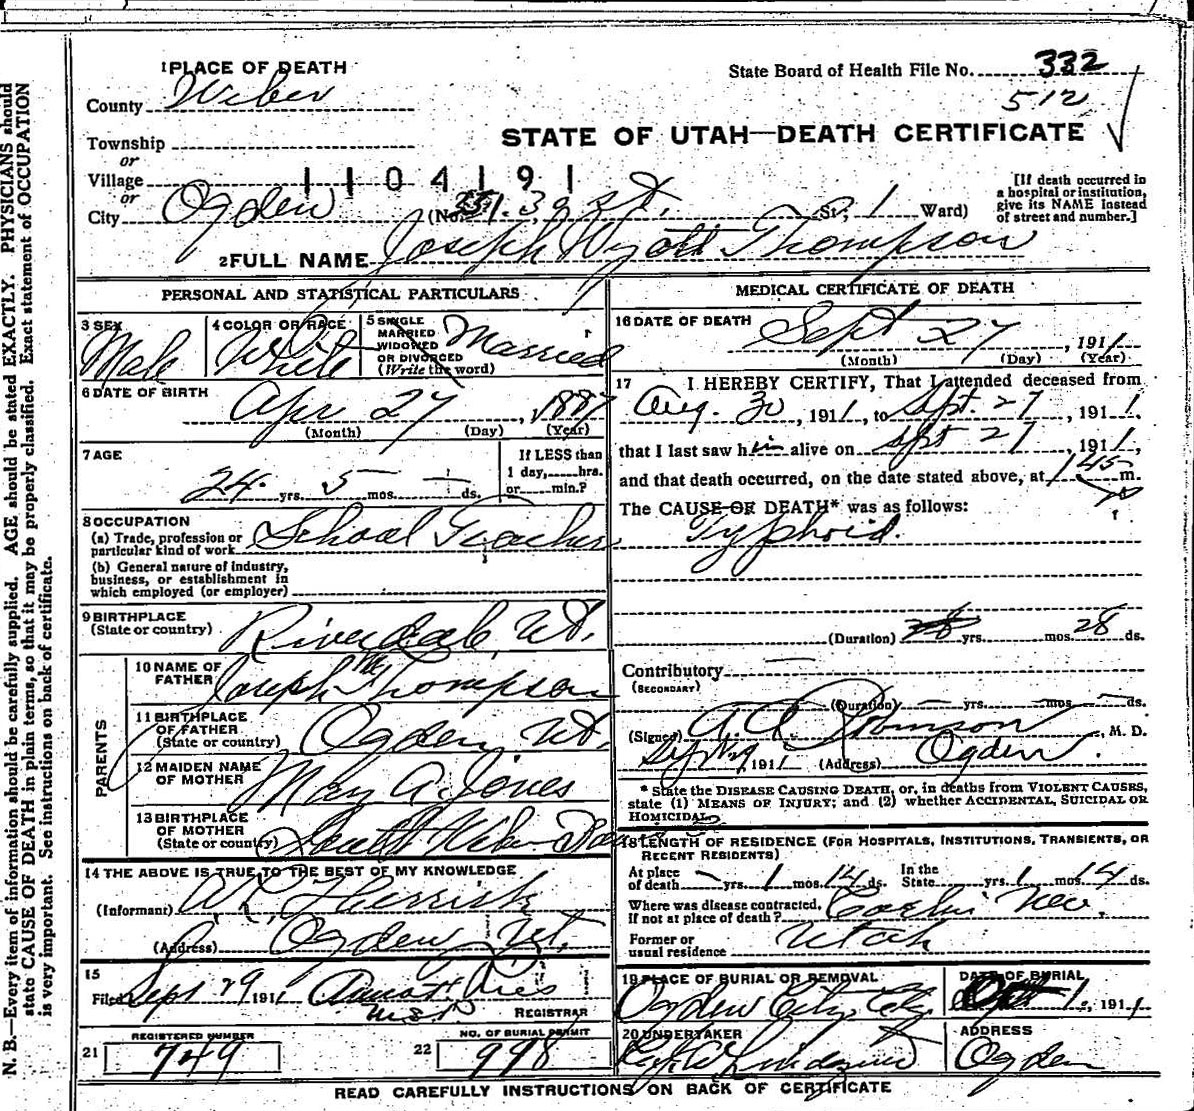 1 PLACE OF DEATH
State Board of Health File No. 332
County Weber
512
STATE OF UTAH—DEATH CERTIFICATE
Township
or
Village
1104191
or
City Ogden (No. 3 St. 1 Ward)
[If death occurred in a hospital or institution, give its NAME instead of street and number.]
2 FULL NAME Joseph Wyatt Thompson
PERSONAL AND STATISTICAL PARTICULARS
3 SEX Male
4 COLOR OR RACE White
5 SINGLE MARRIED WIDOWED OR DIVORCED (Write the word) Married
6 DATE OF BIRTH Apr 27, 1887
(Month) (Day) (Year)
7 AGE 24 yrs. 5 mos. — ds.
If LESS than 1 day, hrs. or min.?
8 OCCUPATION
(a) Trade, profession or particular kind of work School Teacher
(b) General nature of industry, business, or establishment in which employed (or employer)
9 BIRTHPLACE (State or country) Riverdale, Ut.
PARENTS
10 NAME OF FATHER Joseph M Thompson
11 BIRTHPLACE OF FATHER (State or country) Ogden, Ut.
12 MAIDEN NAME OF MOTHER Mary A. Jones
13 BIRTHPLACE OF MOTHER (State or country) South Weber
14 THE ABOVE IS TRUE TO THE BEST OF MY KNOWLEDGE
(Informant)
(Address) Ogden Ut.
15
Filed Sept 29 1911
REGISTRAR
REGISTERED NUMBER
21 749
NO. OF BURIAL PERMIT
22 998
MEDICAL CERTIFICATE OF DEATH
16 DATE OF DEATH Sept 27, 1911
(Month) (Day) (Year)
17 I HEREBY CERTIFY, That I attended deceased from
Aug. 30, 1911, to Sept. 27, 1911,
that I last saw him alive on Sept 27, 1911,
and that death occurred, on the date stated above, at 1 45 m.
The CAUSE OF DEATH* was as follows:
Typhoid.
(Duration) yrs. mos. 28 ds.
Contributory —
(SECONDARY)
(Duration) — yrs. — mos. — ds.
(Signed) M. D.
1911 (Address) Ogden.
* State the DISEASE CAUSING DEATH, or, in deaths from VIOLENT CAUSES, state (1) MEANS OF INJURY; and (2) whether ACCIDENTAL, SUICIDAL OR HOMICIDAL.
18 LENGTH OF RESIDENCE (FOR HOSPITALS, INSTITUTIONS, TRANSIENTS, OR RECENT RESIDENTS)
At place of death — yrs. 1 mos. 14 ds.
In the State yrs. 1 mos 14 ds.
Where was disease contracted, If not at place of death? Nev.
Former or usual residence Utah
19 PLACE OF BURIAL OR REMOVAL Ogden City
DATE OF BURIAL 1, 1911
20 UNDERTAKER
ADDRESS Ogden
READ CAREFULLY INSTRUCTIONS ON BACK OF CERTIFICATE
N. B.—Every item of information should be carefully supplied. AGE should be stated EXACTLY. PHYSICIANS should
state CAUSE OF DEATH in plain terms, so that it may be properly classified. Exact statement of OCCUPATION
is very important. See instructions on back of certificate.